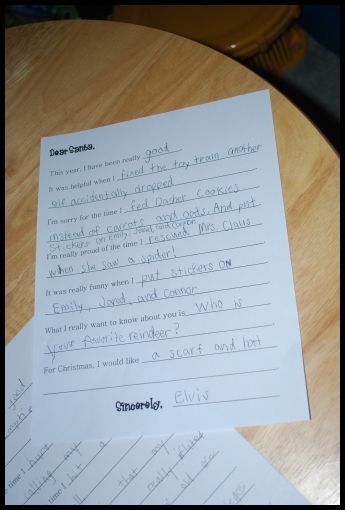 Dear Santa,
This year, I have been really good
It was helpful when I fixed the toy train another
elf accidentally dropped
I'm sorry for the time I fed Dasher cookies
instead of carrots and oats. And put
stickers on Emily, Jared, and Connor
I'm really proud of the time I rescued Mrs. Claus
when she saw a spider!
It was really funny when I put stickers on
Emily, Jared, and Connor
What I really want to know about you is Who is
your favorite reindeer?
For Christmas, I would like a scarf and hat
Sincerely, Elvis
good
time I hurt
time I hit a
that my
really
all are